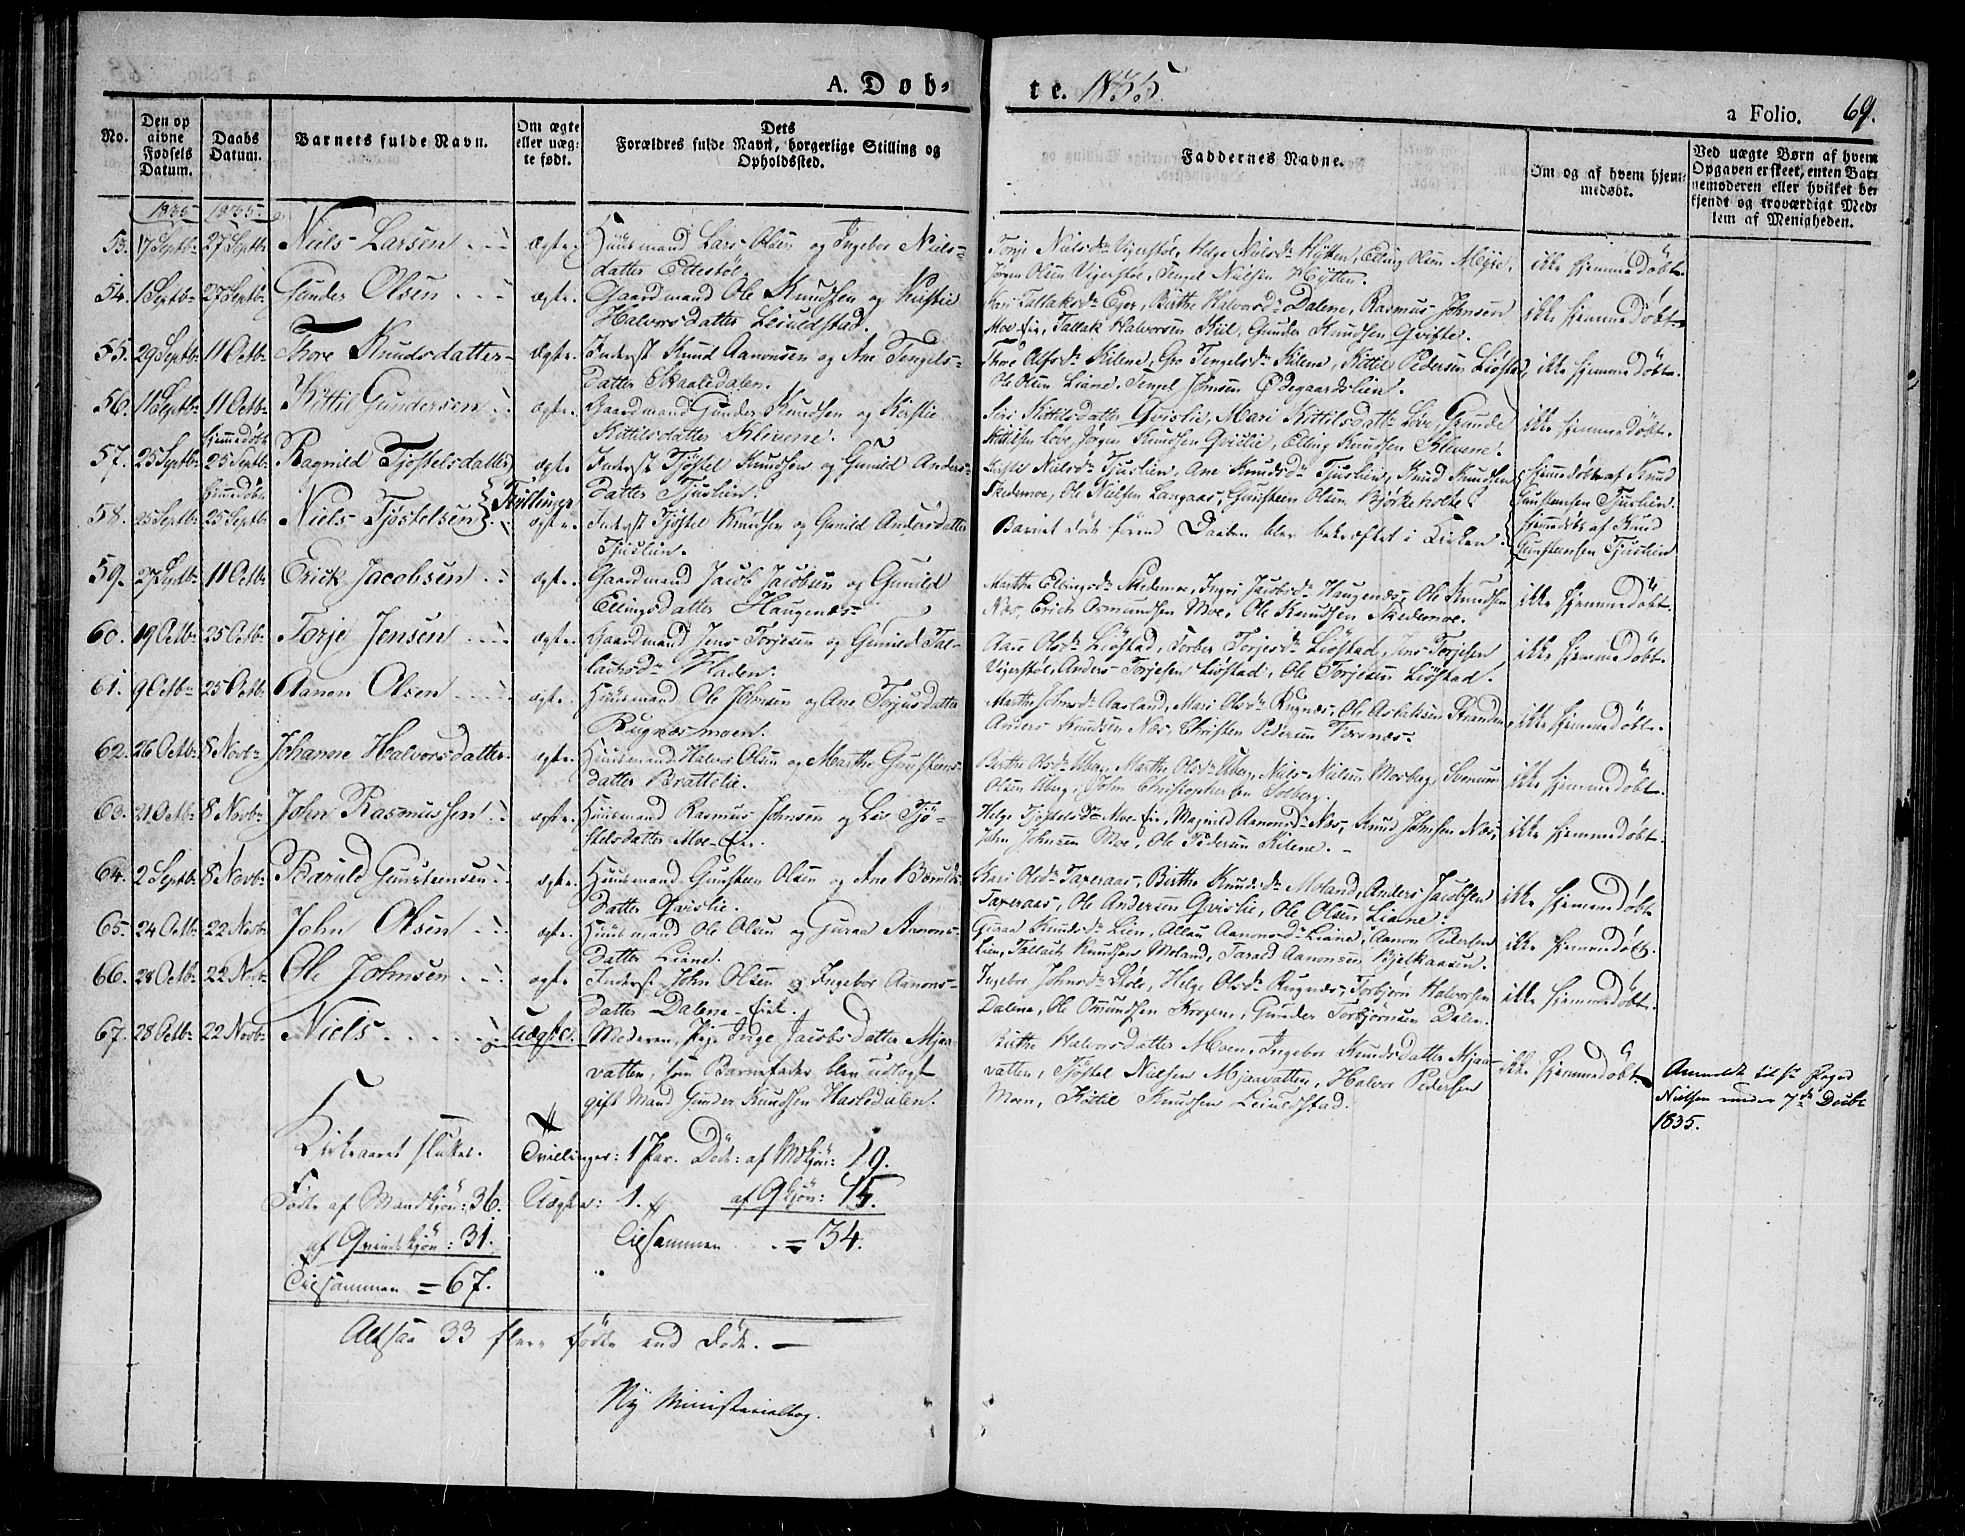 A. Døb-
te. 1835.
a Folio. 69.
No.
Den op
givne
Fødsels
Datum.
Daabs
Datum.
Barnets fulde Navn.
Om ægte
eller uæg-
te født.
Dets
Forældres fulde Navn, borgerlige Stilling og
Opholdssted.
Faddernes Navne.
Om og af hvem hjem-
medøbt.
Ved uægte Børn af hvem
Opgaven er skeet, enten Bar-
nemoderen eller hvilket be-
kjendt og troværdigt Med-
lem af Menigheden.
1835 1835.
53. 17 Septbr 27 Septbr Niels Larsen ægte. Huusmand Lars Olsen og Ingebor Niels-
datter Ettestøl.
Torje Nielsdr Vigerstøl, Helge Nielsdr Hytten, Elling Olsen
Jørgen Olsen Vigerstøl, Tengel Nielsen Hytten.
ikke hjemmedøbt.
54. 1 Septbr 27 Septbr Gunder Olsen ægte. Gaardmand Ole Knudsen og Kirstie
Halvorsdatter Leiuldstad.
Kari Tallaksdr Eger, Birthe Halvorsdr Dalene, Rasmus Johnsen
Moe Eie, Tallak Halvorsen Kiil, Gunder Knudsen Qvistie.
ikke hjemmedøbt.
55. 29 Septbr 11 Octbr Thore Knudsdatter ægte. Inderst Knud Aanonsen og Ane Tengels-
datter Skaaledalen.
Thore Olfsdr Kilene, Gro Tengelsdr Kilene, Kittil Pedersen Liøstad,
Ole Olsen Liane, Tengel Johnsen Ødegaardslien.
ikke hjemmedøbt.
56. 11 Septbr 11 Octbr Kittil Gundersen ægte. Gaardmand Gunder Knudsen og Kirstie
Kittilsdatter Klevene.
Siri Kittilsdatter Qvislie, Mari Kittilsdattr Løve, Graude
Kittilsen Love, Jørgen Knudsen Qvislie, Elling Knudsen Klevene.
ikke hjemmedøbt.
hjemmedøbt
57. 25 Septbr 25 Septbr Ragnild Tjøstelsdatter ægte Inderst Tjøstel Knudsen og Gunild Anders-
datter Tjuslien.
Kirstie Nielsdr Tjuslien, Ane Knudsdr Tjuslien, Knud Knudsen
Skedemoe, Ole Nielsen Langaas, Gunsteen Olsen Bjørkeholte.
hjemmedøbt af Knud
Gunstensen Tjuslien.
Tvillinger
hjemmedøbt
58. 25 Septbr 25 Septbr Niels Tjøstelsen ægte. Inderst Tjøstel Knudsen og Gunild Andersdatter
Tjuslien.
Barnet døde forend Daaben blev bekræftet i Kirken.
hjemmedøbt af Knud
Gunstensen Tjuslien
59. 27 Septbr 11 Octbr Erick Jacobsen ægte. Gaardmand Jacob Jacobsen og Gunild
Ellingsdatter Haugenæs.
Marthe Ellingsdr Skedemoe, Ingri Jacobsdr Haugenæs, Ole Knudsen
Næs, Erich Osmundsen Moe, Ole Knudsen Skedemoe.
ikke hjemmedøbt.
60. 19 Octbr 25 Octbr Torje Jensen ægte. Gaardmand Jens Torjesen og Gunild Tal-
laksdr Fladen.
Aase Olsdr Liøstad, Torber Torjesdr Liøstad, Jens Torjesen
Vigerstøl, Anders Torjesen Liøstad, Ole Torjesen Liøstad.
ikke hjemmedøbt.
61. 9 Octbr 25 Octbr Aanon Olsen ægte. Huusmand Ole Johnsen og Ane Torjusdatter
Rugnæsmoen.
Marthe Johnsdr Aasland, Mari Olsdr Rugnæs, Ole Aslaksen Stranden,
Anders Knudsen Næs, Christen Pedersen Terenæs.
ikke hjemmedøbt.
62. 26 Octbr 8 Novbr Johanne Halvorsdatter ægte. Huusmand Halvor Olsen og Marthe Gunsteens-
datter Brattelie.
Birthe Olsdr Uberg, Marthe Olsdr Uberg, Niels Nielsen Morberg, Svenum
Olsen Uberg, John Christophersen Solberg.
ikke hjemmedøbt.
63. 21 Octbr 8 Novbr John Rasmussen ægte. Huusmand Rasmus Johnsen og Liv Tjø-
stelsdatter Moe-Eie.
Helge Tjøstelsdr Moe-Eie, Magnild Aanonsdr Næs, Knud Johnsen Næs,
John Johnsen Moe, Ole Pedersen Kilene.
ikke hjemmedøbt.
64. 2 Septbr 8 Novbr Barüld Gunsteensen ægte. Huusmand Gunsteen Olsen og Ane Barulds-
datter Qvislie.
Kari Olsdr Taxeraas, Birthe Knudsdr Moland, Anders Jacobsen
Taxeraas, Ole Andersen Qvislie, Ole Olsen Liane.
ikke hjemmedøbt
65. 24 Octbr 22 Novbr John Olsen ægte. Huusmand Ole Olsen og Guroe Aanons-
datter Liane.
Guroe Knudsdr Lien, Allau Aanonsdr Liane, Aanon Pedersen
Lien, Tallack Knudsen Moland, Tarald Aanonsen Bjelkaasen.
ikke hjemmedøbt.
66. 28 Octbr 22 Novbr Ole Johnsen ægte. Inderst John Olsen og Ingebor Aanons-
datter Dalene-Eiet.
Ingebor Johnsdr Støle, Helge Olsdr Rugnæs, Torbjørn Halvorsen
Dalene, Ole Omundsen Krogen, Gunder Torbjørnsen Dalen.
ikke hjemmedøbt.
67. 28 Octbr 22 Novbr Niels uægte. Moderen, Pige Inge Jacobsdatter Mjaa-
vatten, som Barnefader blev udlagt
gift Mand Gunder Knudsen Hasledalen.
Birthe Halvorsdatter Moen, Ingebor Knudsdatter Mjaa-
vatten, Tjøstel Nielsen Mjaavatten, Halvor Pedersen
Moen, Kittil Knudsen Leiuldstad.
ikke hjemmedøbt.
Anmeldt til
Nielsen under 7de Decbr
1835.
Kirkeaaret sluttet.
Tvillinger: 1 Par. Døde: af Mdkjøn: 19.
Fødte af Mandkjøn: 36. Uægte: 1. af Qkjøn: 15.
af Qvindekjøn: 31. Tilsammen = 34.
Tilsammen = 67.
Altsaa 33 flere fødte end døde.
Ny Ministerialbog.